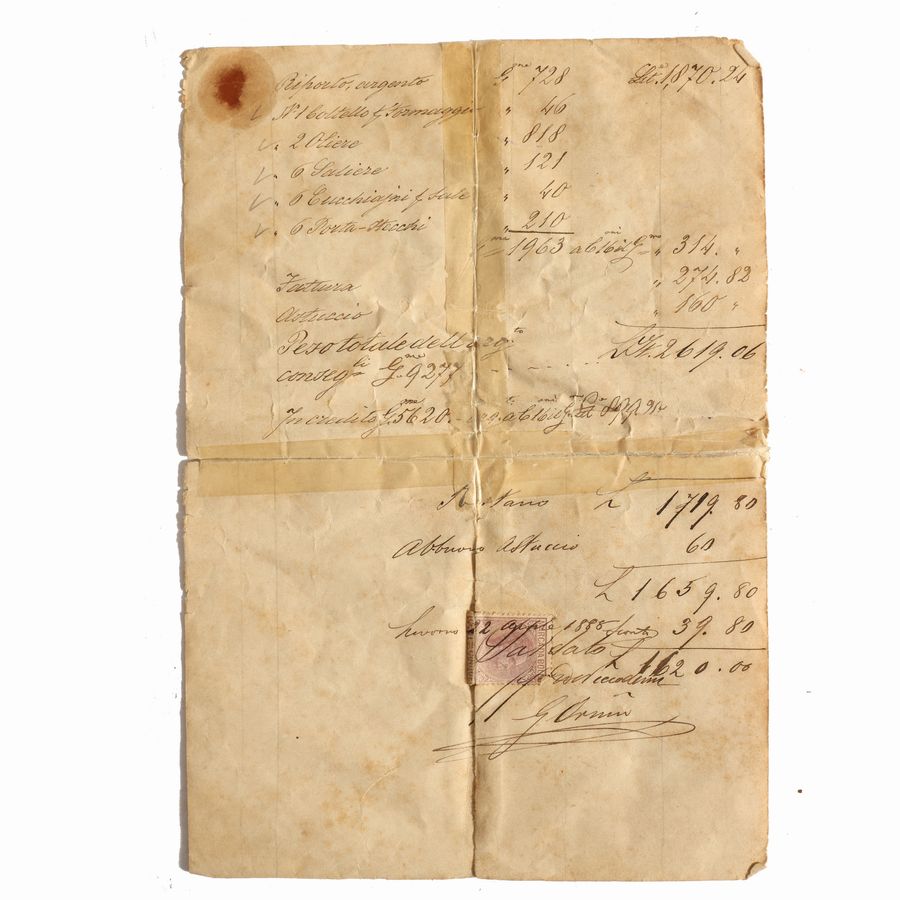 Riporto, argento Gme 728 Lit.e 1,870.24
" N°1 Coltello p. Formaggio " 46
" 2 Oliere " 818
" 6 Saliere " 121
" 6 Cucchiajni p. Sale " 40
" 6 Porta-Stecchi " 210
Gme 1963 a C.mi 16 il Gmo " 314. "
Fattura " 274.82
Astuccio " 160 "
Peso totale dell'arg.to
conseg. Gme 9277 Lit. 2619.06
In credito Gme 5620. a C.mi 16 il G.
Restano L 1719.80
Abbuono Astuccio 60
L 1659.80
Livorno 22 aprile 1888 39.80
Saldato L 1620.00